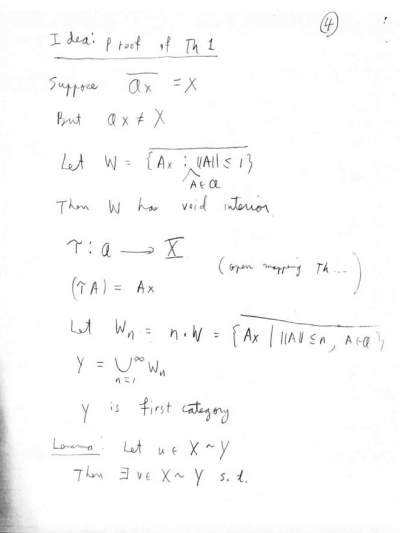 ④
Idea: Proof of Th 1
Suppose \overline{𝒶x} = X
But 𝒶x ≠ X
Let W = \overline{{Ax : ||A|| ≤ 1}}
A ∈ 𝒶
Then W has void interior
τ: 𝒶 ⟶ X
(open mapping Th...)
(τA) = Ax
Let W_n = n·W = \overline{{Ax | ||A|| ≤ n, A ∈ 𝒶}}
Y = ⋃_{n=1}^∞ W_n
Y is first category
Lemma: Let u ∈ X ~ Y
Then ∃ v ∈ X ~ Y s.t.